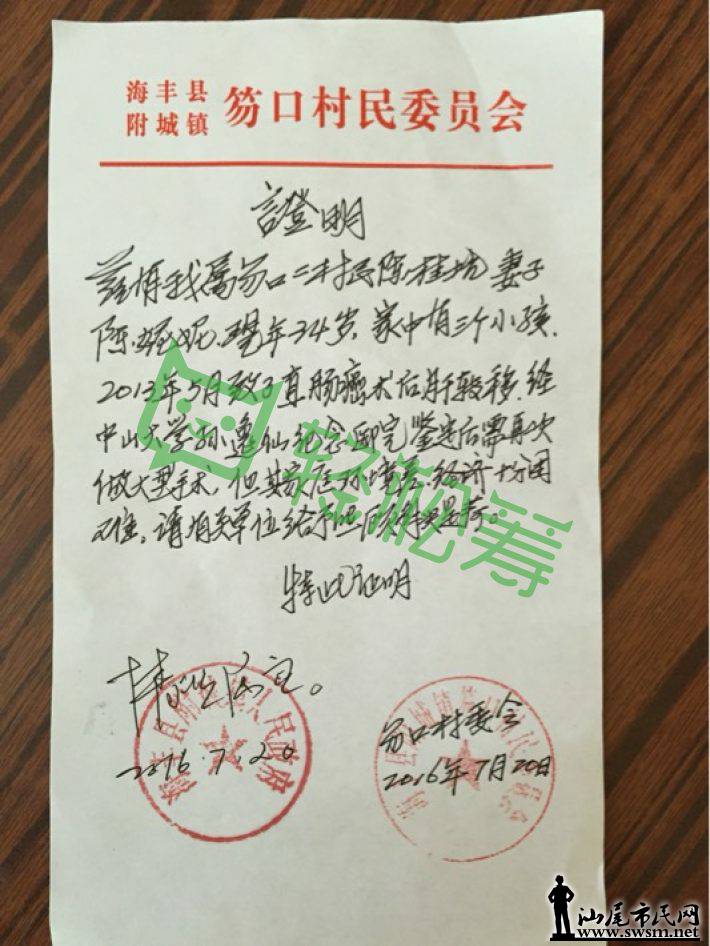 海丰县
附城镇
笏口村民委员会
證明
兹有我属笏口二村民陈桂 妻子
陈妮妮,现年34岁,家中有三个小孩.
2013年5月致 直肠癌术后肝转移.经
中山大学孙逸仙纪念医院鉴定后需再次
做大型手术,但其家庭环境差.经济十分困
难,请有关单位给予照顾 是荷。
特此证明
情况属实。
2016.7.20
海丰县附城镇人民政府
笏口村委会
2016年7月20日
轻松筹
汕尾市民网
www.swsm.net